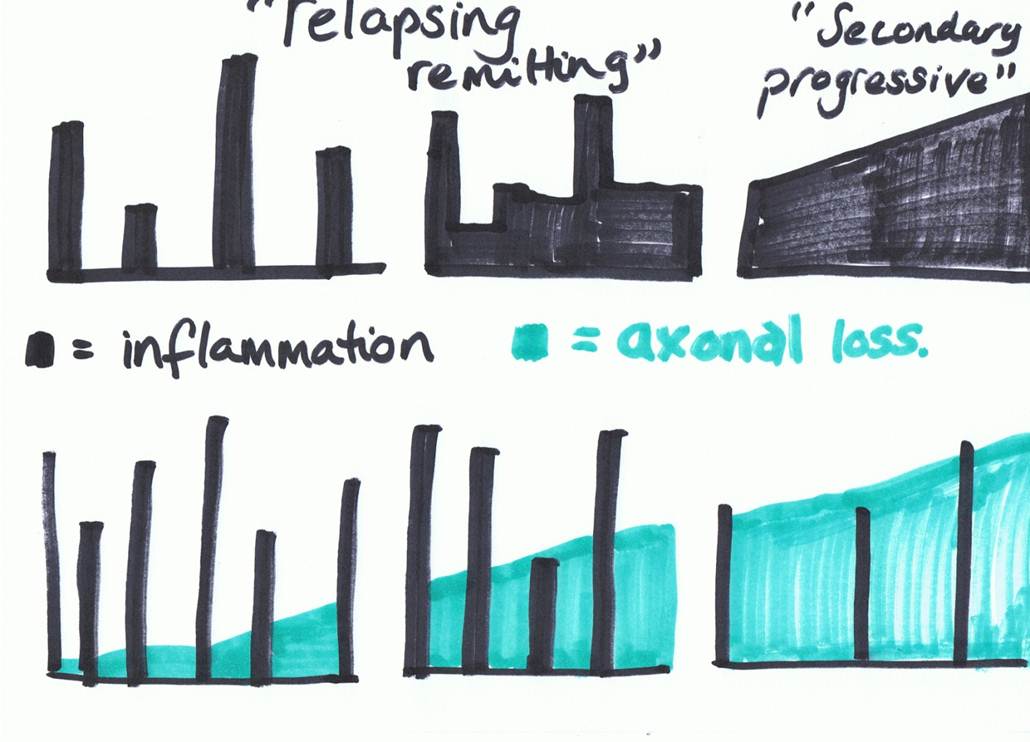 "relapsing
remitting"
"Secondary
progressive"
= inflammation
= axonal loss.